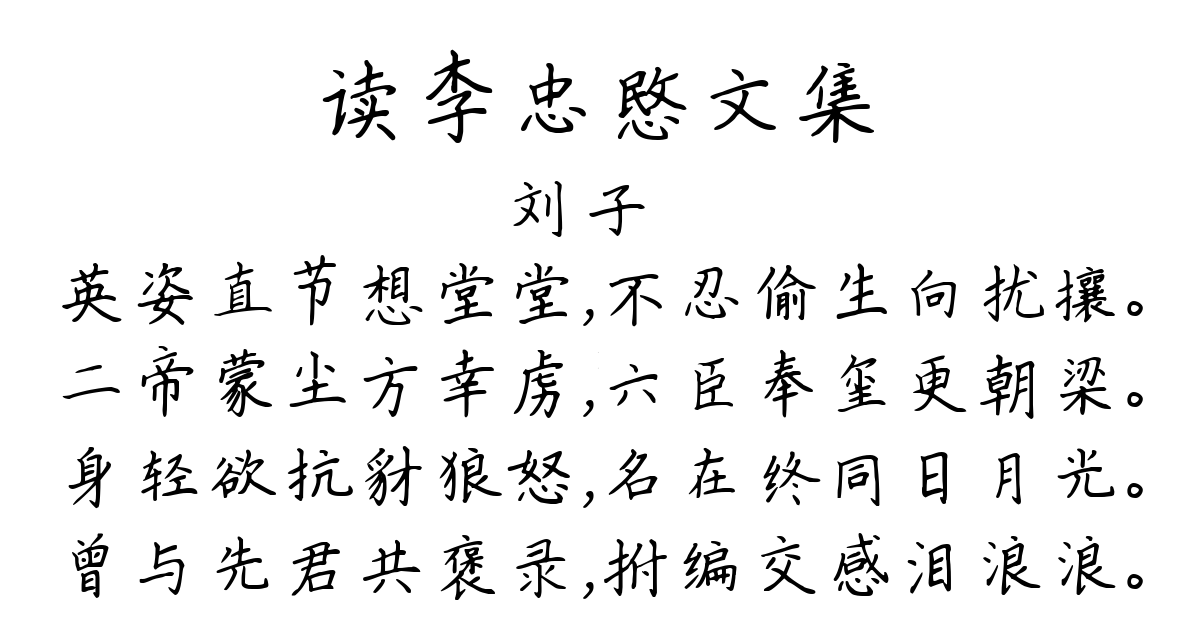 读李忠愍文集
刘子
英姿直节想堂堂,不忍偷生向扰攘。
二帝蒙尘方幸虏,六臣奉玺更朝梁。
身轻欲抗豺狼怒,名在终同日月光。
曾与先君共褒录,拊编交感泪浪浪。